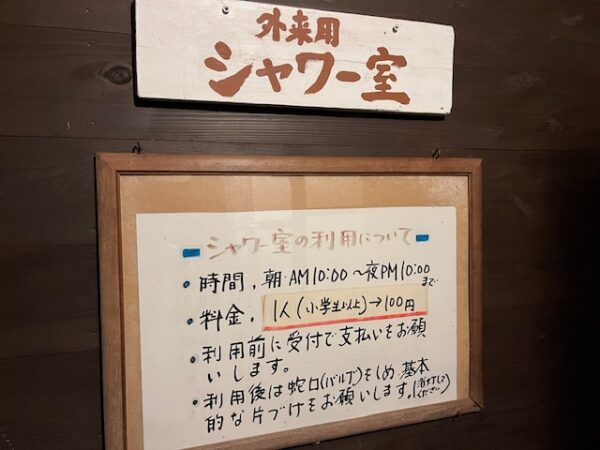 外来用
シャワー室
シャワー室の利用について
・時間、朝AM10:00〜夜PM10:00
まで
・料金、1人(小学生以上)→100円
・利用前に受付で支払いをお願
いします。
・利用後は蛇口(バルブ)をしめ、基本
的な片づけをお願いします。(消灯して
ください)